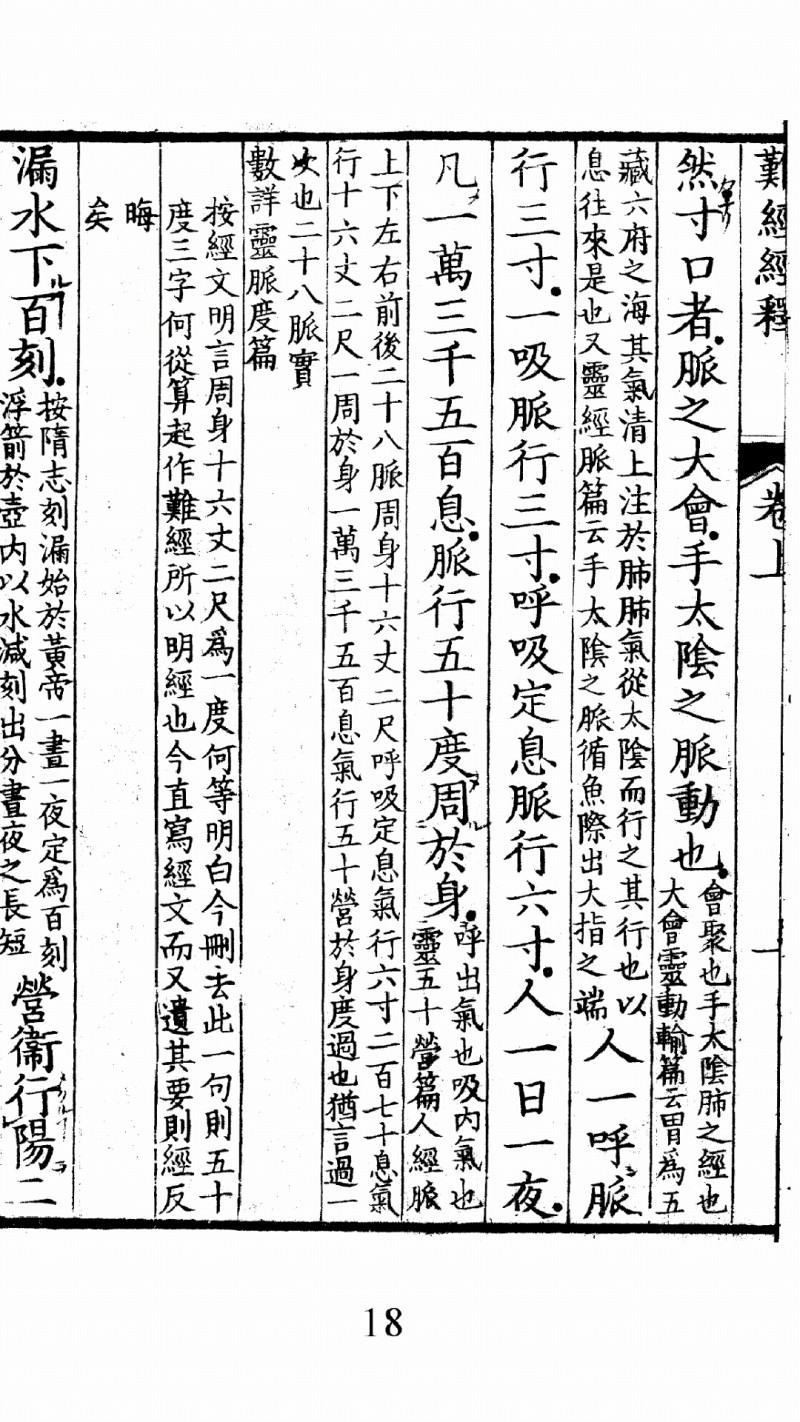 難經經釋
卷上
一
然寸口者脈之大會手太陰之脈動也
會聚也手太陰肺之經也
大會靈動輸篇云胃爲五
藏六府之海其氣清上注於肺肺氣從太陰而行之其行也以
息往來是也又靈經脈篇云手太陰之脈循魚際出大指之端
人一呼脈
行三寸一吸脈行三寸呼吸定息脈行六寸人一日一夜
凡一萬三千五百息脈行五十度周於身
呼出氣也吸內氣也
靈五十營篇人經脈
上下左右前後二十八脈周身十六丈二尺呼吸定息氣行六寸二百七十息氣
行十六丈二尺一周於身一萬三千五百息氣行五十營於身度過也猶言過一
次也二十八脈實
數詳靈脈度篇
按經文明言周身十六丈二尺爲一度何等明白今刪去此一句則五十
度三字何從算起作難經所以明經也今直寫經文而又遺其要則經反
晦
矣
漏水下百刻
按隋志刻漏始於黃帝一晝一夜定爲百刻
浮箭於壺內以水減刻出分晝夜之長短
營衞行陽二
18